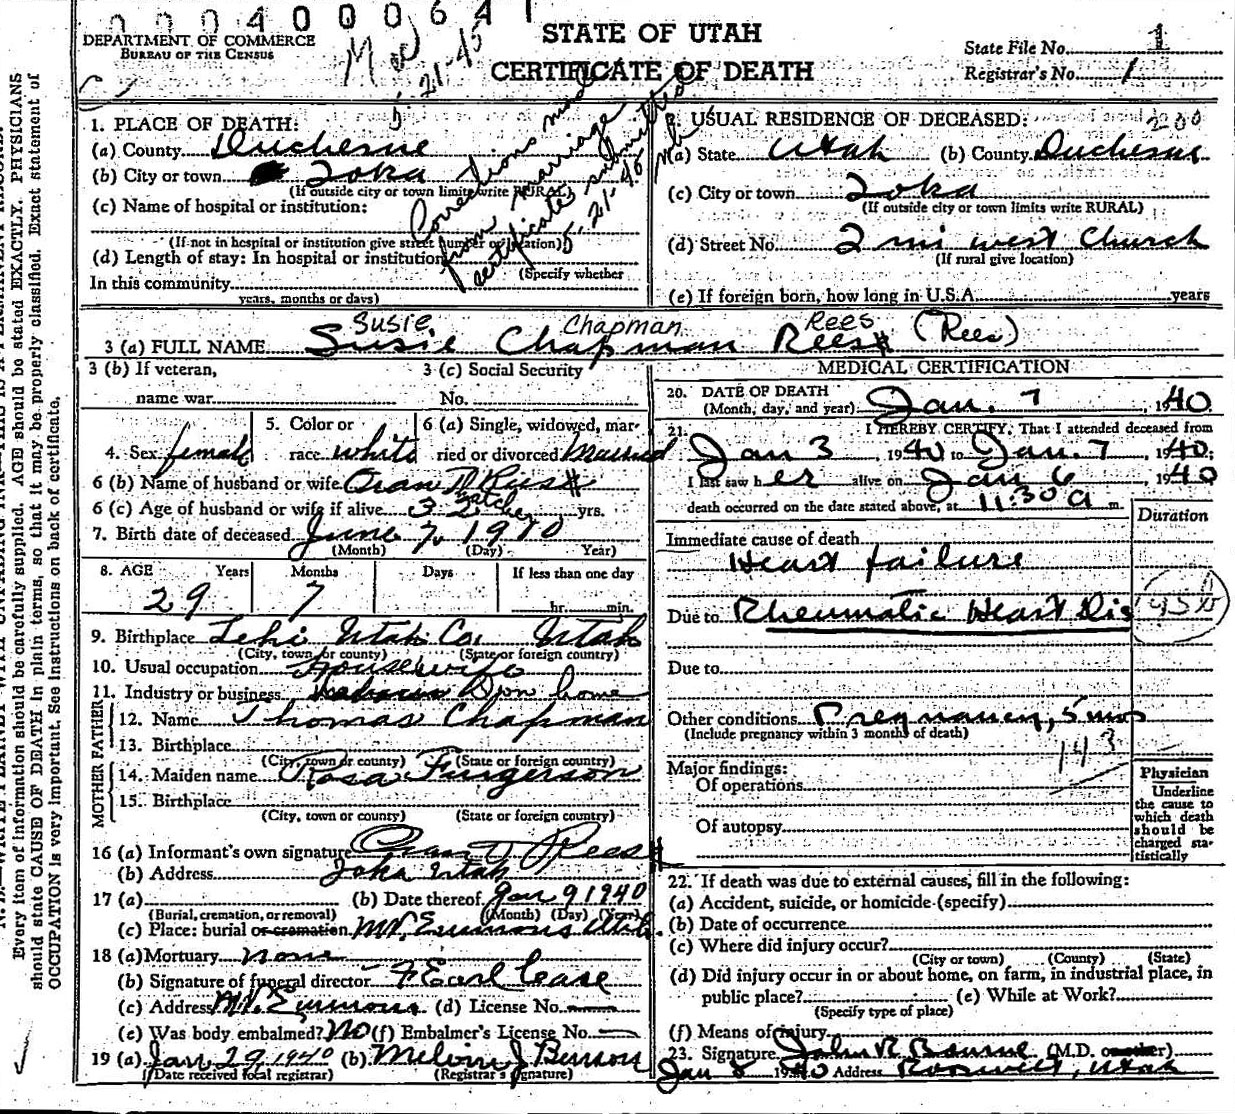 0 0 0 4 0 0 0 6 4 1
DEPARTMENT OF COMMERCE
BUREAU OF THE CENSUS
5-21-45
STATE OF UTAH
CERTIFICATE OF DEATH
State File No. 1
Registrar's No. 1
Every item of information should be carefully supplied. AGE should be stated EXACTLY. PHYSICIANS
should state CAUSE OF DEATH in plain terms, so that it may be properly classified. Exact statement of
OCCUPATION is very important. See instructions on back of certificate.
Corrections made
from marriage
certificate submitted
5-21-45
1. PLACE OF DEATH:
(a) County Duchesne
(b) City or town Ioka
(If outside city or town limits write RURAL)
(c) Name of hospital or institution:
(If not in hospital or institution give street number or location)
(d) Length of stay: In hospital or institution
(Specify whether
In this community
years, months or days)
2. USUAL RESIDENCE OF DECEASED: 200
(a) State Utah (b) County Duchesne
(c) City or town Ioka
(If outside city or town limits write RURAL)
(d) Street No. 2 mi west Church
(If rural give location)
(e) If foreign born, how long in U.S.A. years
Susie Chapman Rees
3 (a) FULL NAME Susie Chapman Rees (Rees)
3 (b) If veteran,
name war
3 (c) Social Security
No.
4. Sex female
5. Color or
race white
6 (a) Single, widowed, mar-
ried or divorced Married
6 (b) Name of husband or wife Oran D Rees
6 (c) Age of husband or wife if alive 32 yrs.
7. Birth date of deceased June 7, 1910
(Month) (Day) Year)
8. AGE Years Months Days If less than one day
29 7 hr. min.
9. Birthplace Lehi Utah Co. Utah
(City, town or county) (State or foreign country)
10. Usual occupation Housewife
11. Industry or business own home
FATHER
12. Name Thomas Chapman
13. Birthplace
(City, town or county) (State or foreign country)
MOTHER
14. Maiden name Rosa Fingerson
15. Birthplace
(City, town or county) (State or foreign country)
16 (a) Informant's own signature Oran D Rees
(b) Address Ioka Utah
17 (a) (b) Date thereof Jan 9 1940
(Burial, cremation, or removal) (Month) (Day) (Year)
(c) Place: burial or cremation Mt. Emmons Utah.
18 (a) Mortuary none
(b) Signature of funeral director F Earl Case
(c) Address Mt. Emmons (d) License No.
(e) Was body embalmed? No (f) Embalmer's License No.
19 (a) Jan 29, 1940 (b) Melvin J Benson
(Date received local registrar) (Registrar's signature)
MEDICAL CERTIFICATION
20. DATE OF DEATH
(Month, day, and year) Jan. 7, 1940
21. I HEREBY CERTIFY, That I attended deceased from
Jan 3, 1940 to Jan. 7, 1940;
I last saw her alive on Jan 6, 1940
death occurred on the date stated above, at 11:30 a m.
Duration
Immediate cause of death
Heart failure
Due to Rheumatic Heart Dis
Due to
Other conditions Pregnancy, 5 mos
(Include pregnancy within 3 months of death)
143
Major findings:
Of operations
Of autopsy
Physician
Underline
the cause to
which death
should be
charged sta-
tistically
22. If death was due to external causes, fill in the following:
(a) Accident, suicide, or homicide (specify)
(b) Date of occurrence
(c) Where did injury occur?
(City or town) (County) (State)
(d) Did injury occur in or about home, on farm, in industrial place, in
public place? (e) While at Work?
(Specify type of place)
(f) Means of injury
23. Signature John R Bourne (M.D. or other)
Jan 8 1940 Address Roosevelt, Utah